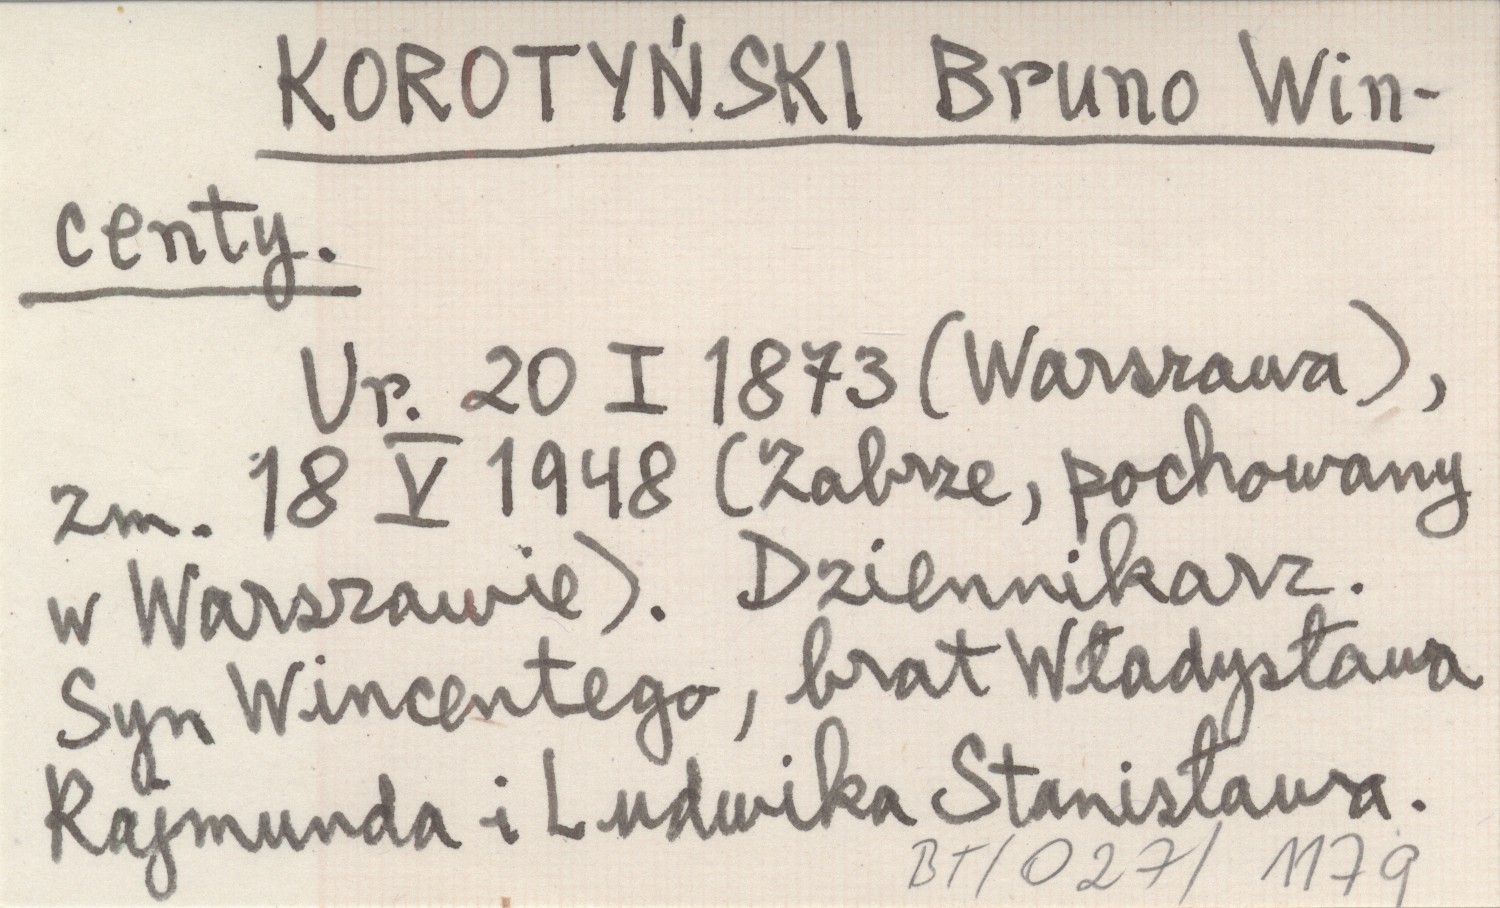 KOROTYŃSKI Bruno Win-
centy.
Ur. 20 I 1873 (Warszawa),
zm. 18 V 1948 (Zabrze, pochowany
w Warszawie). Dziennikarz.
Syn Wincentego, brat Władysława
Rajmunda i Ludwika Stanisława.
BT/027/1179